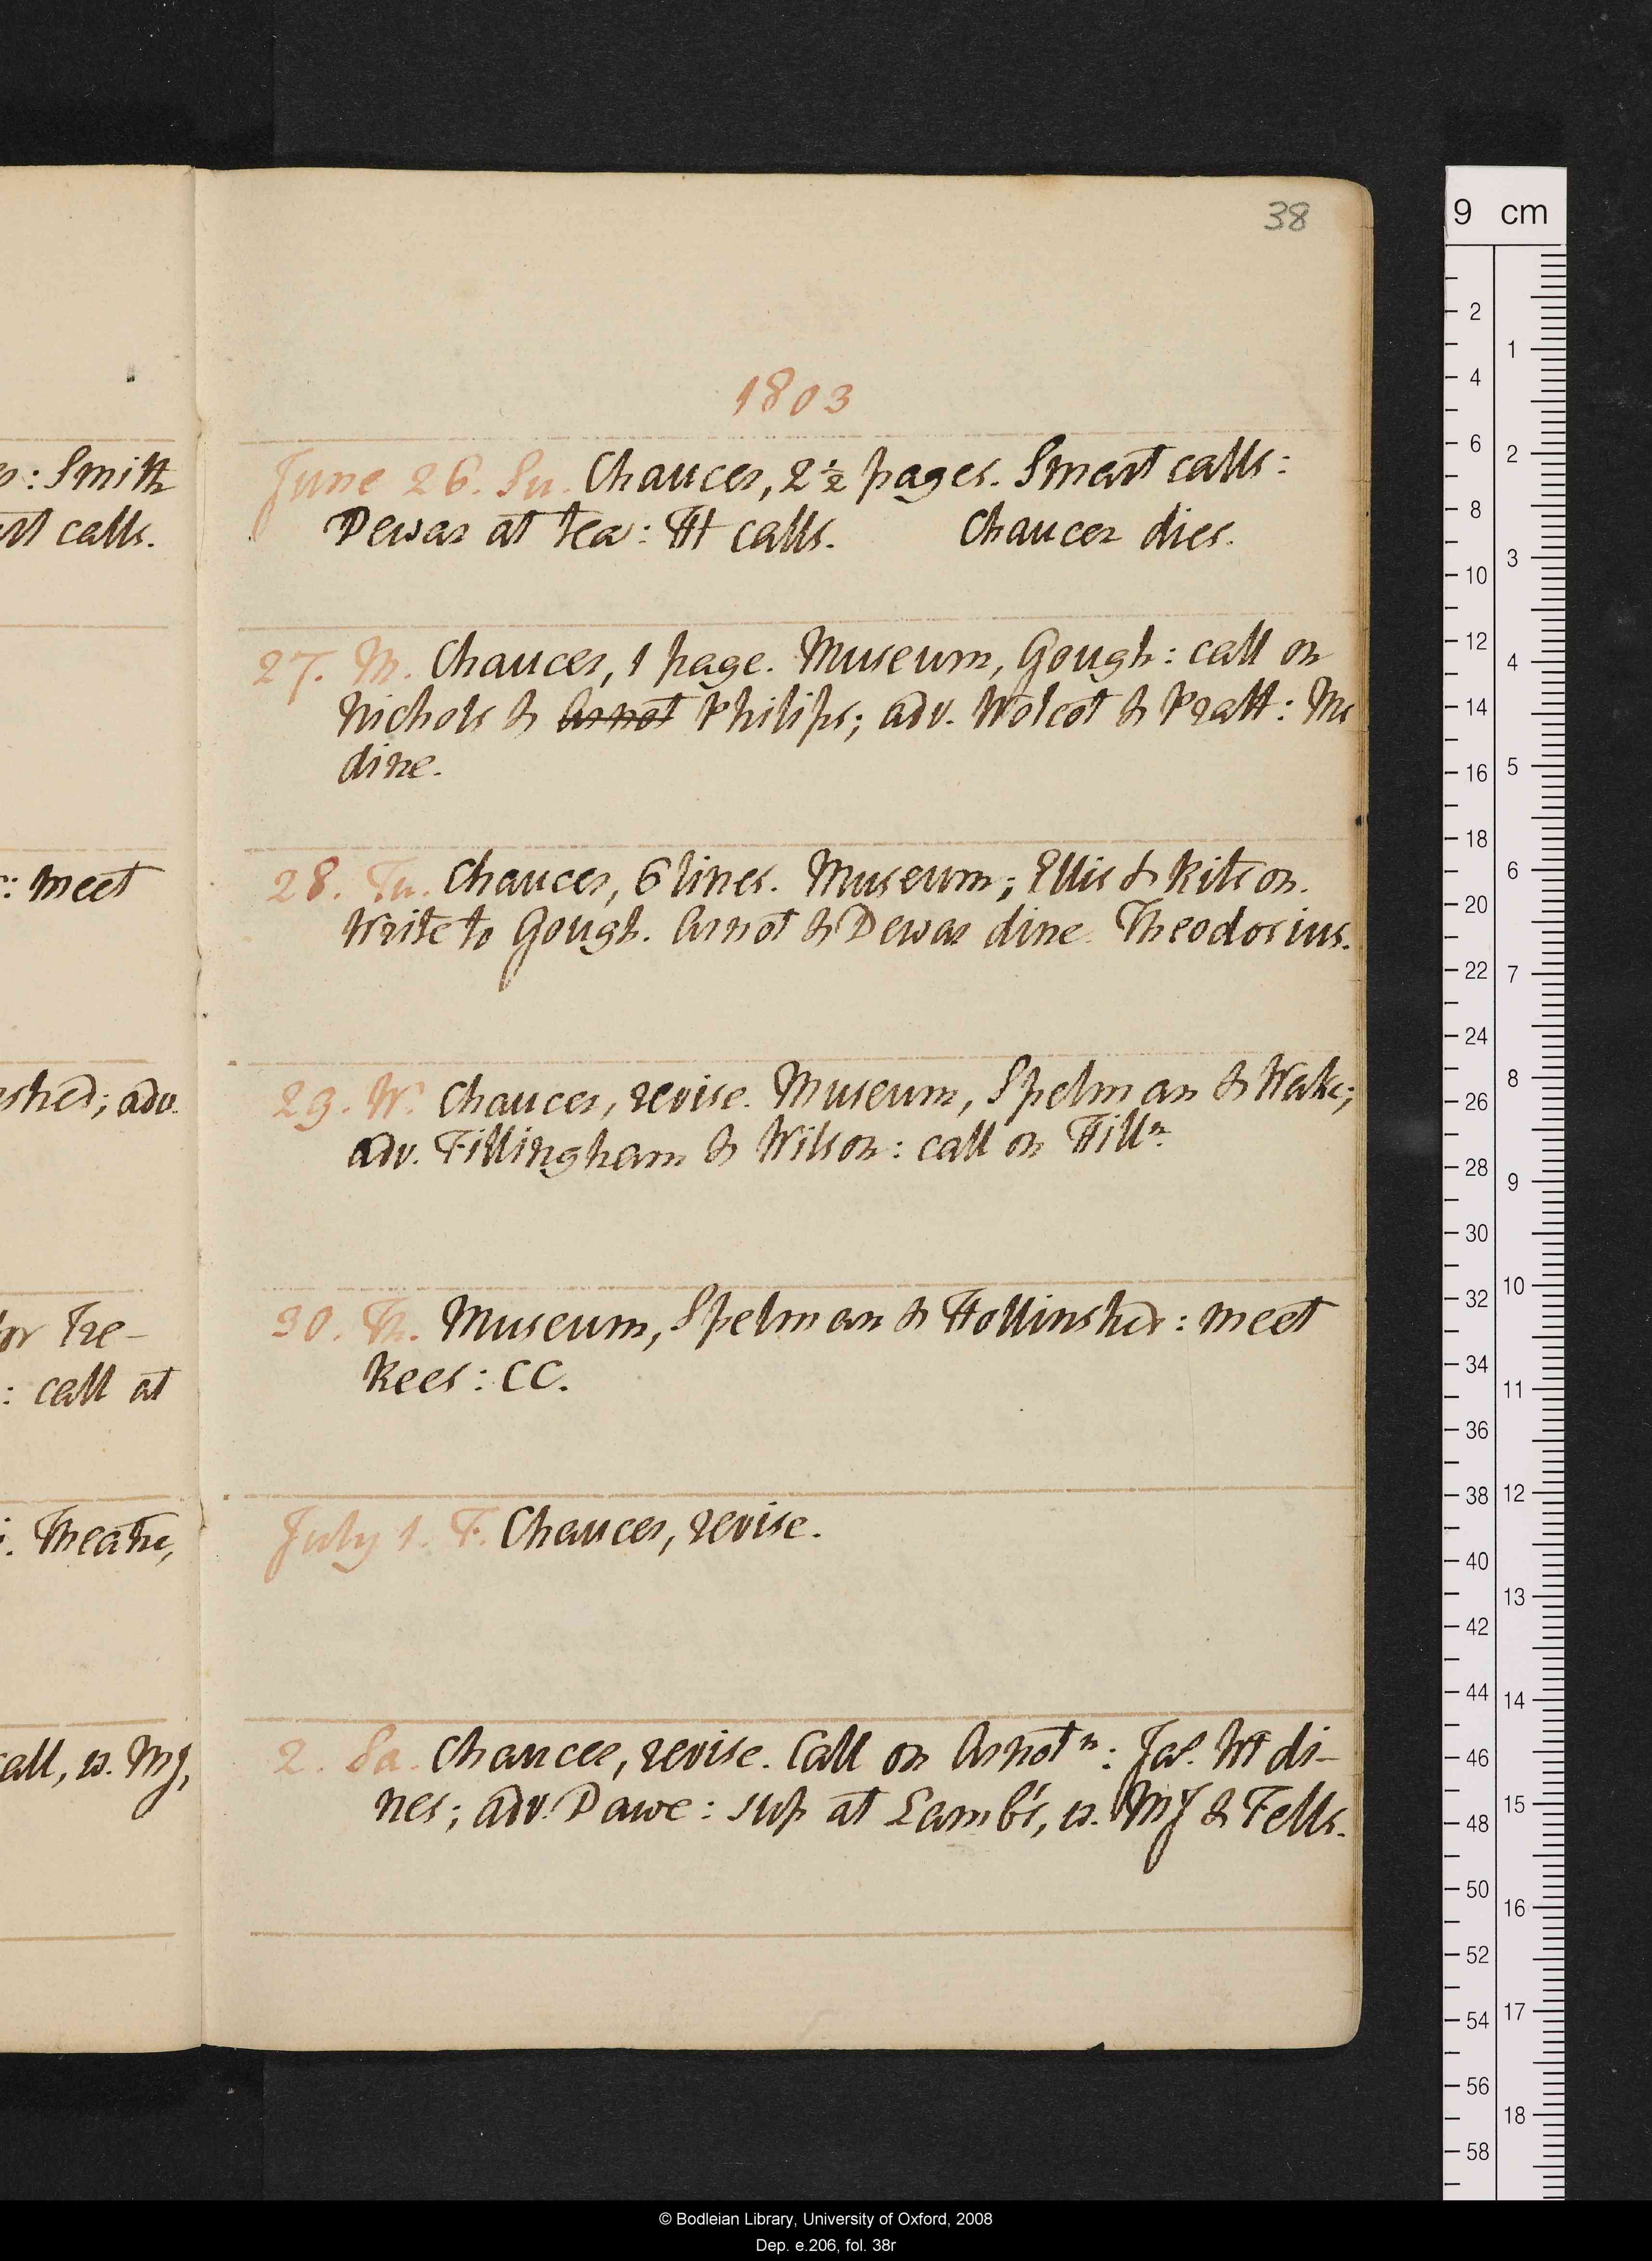 38
1803
June 26. Su. Chaucer, 2½ pages. Smart calls:
Dewar at tea: H calls. Chaucer dies.
27. M. Chaucer, 1 page. Museum, Gough: call on
Nichols & Arnot Philips; adv. Wolcot & Pratt: Ms
dine.
28. Tu. Chaucer, 6 lines. Museum; Ellis & Ritson.
Write to Gough. Arnot & Dewar dine. Theodosius.
29. W. Chaucer, revise. Museum, Spelman & Wake;
adv. Fillingham & Wilson: call on Hilln.
30. Th. Museum, Spelman & Hollinshed: meet
Rees: CC.
July 1. F. Chaucer, revise.
2. Sa. Chaucer, revise. Call on Arnotn: Jas. Wt di-
nes; adv. Dawe: sup at Lamb's, w. MJ & Fells.
: Smith
calls.
: meet
shed; adv.
Tre-
: call at
Theatre,
call, w. MJ,
9 cm
2
4
6
8
10
12
14
16
18
20
22
24
26
28
30
32
34
36
38
40
42
44
46
48
50
52
54
56
58
1
2
3
4
5
6
7
8
9
10
11
12
13
14
15
16
17
18
© Bodleian Library, University of Oxford, 2008
Dep. e.206, fol. 38r